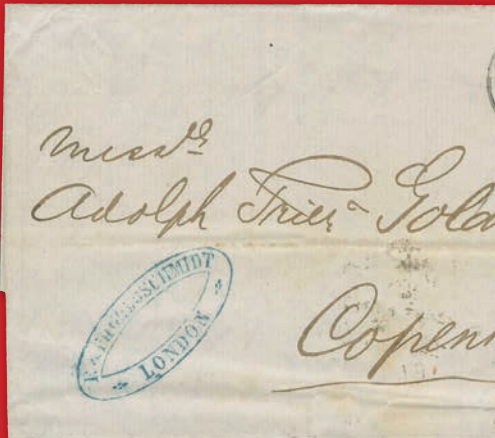 Messrs
Adolph Trier & Gold
Copenh
GOLDSCHMIDT
LONDON